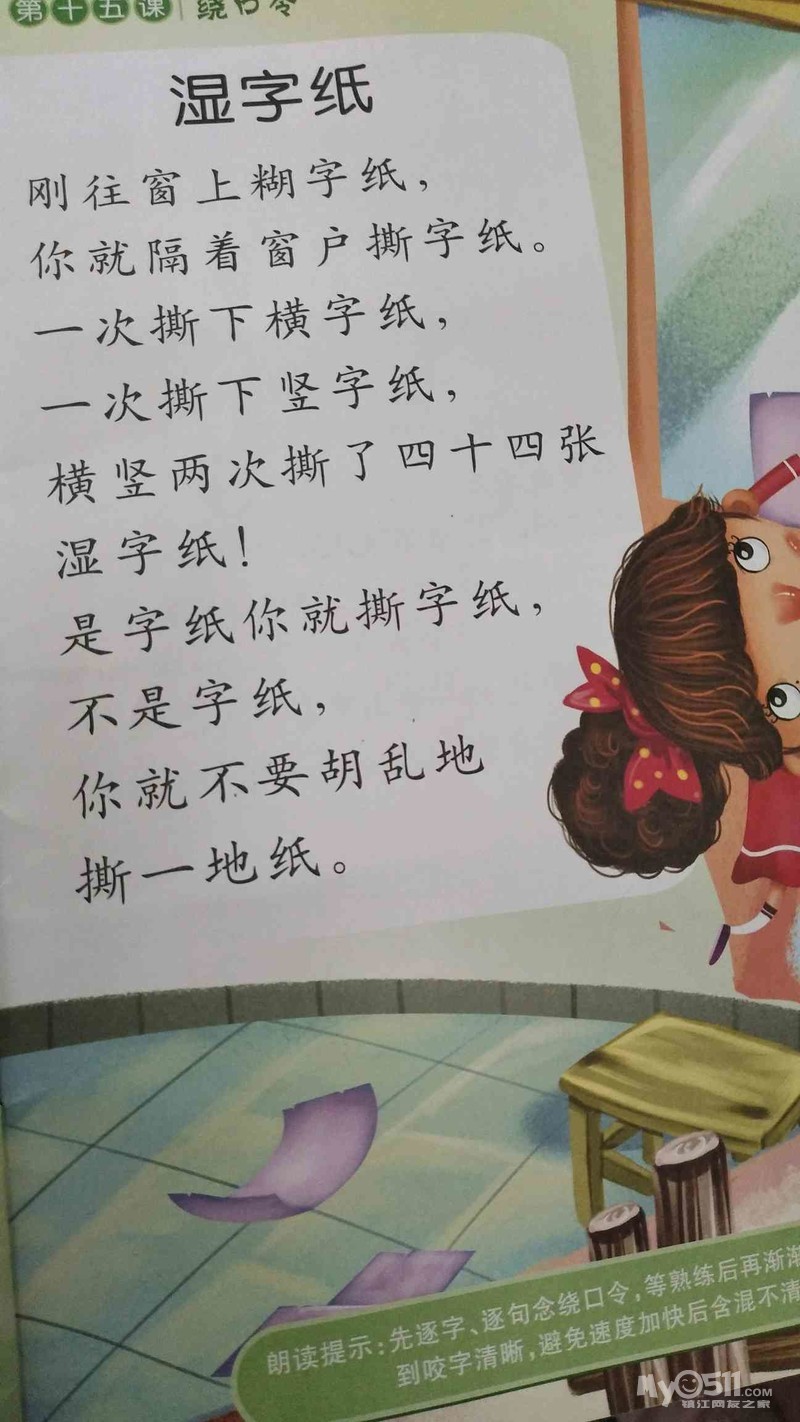 第十五课 绕口令
湿字纸
刚往窗上糊字纸，
你就隔着窗户撕字纸。
一次撕下横字纸，
一次撕下竖字纸，
横竖两次撕了四十四张
湿字纸！
是字纸你就撕字纸，
不是字纸，
你就不要胡乱地
撕一地纸。
朗读提示：先逐字、逐句念绕口令，等熟练后再渐渐
到咬字清晰，避免速度加快后含混不清
My0511.com
镇江网友之家